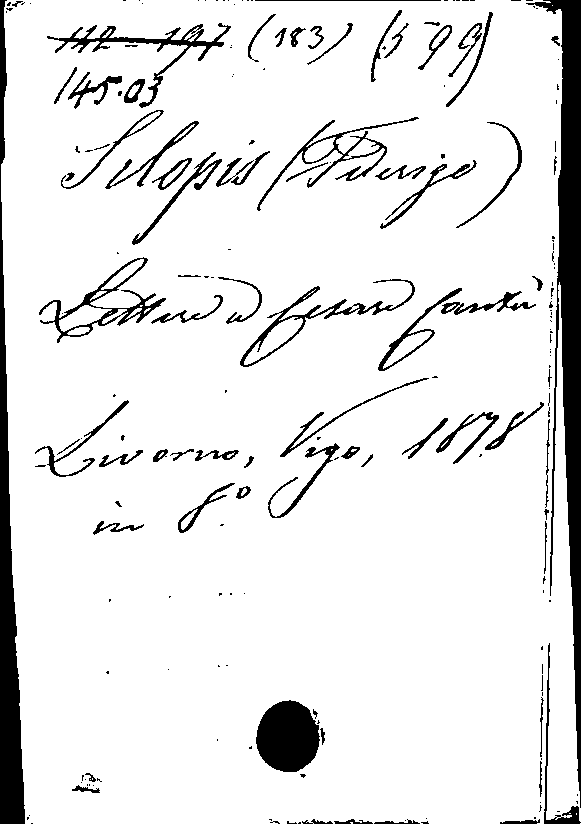 112 - 197 (183) (599)
145.03
Sclopis (Federigo)
Lettere a Cesare Cantù
Livorno, Vigo, 1878
in 8º